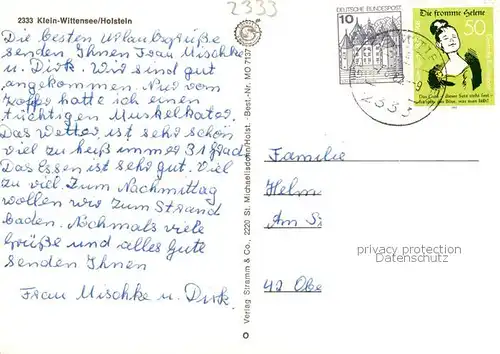 2333
2333 Klein-Wittensee/Holstein
Die besten Urlaubsgrüße
senden Ihnen Frau Mischke
u. Dirk. Wir sind gut
angekommen. Nur vom
Koffer hatte ich einen
tüchtigen Muskelkater.
Das Wetter ist sehr schön
viel zu heiß immer 31 grad
Das Essen ist sehr gut. Viel
zu viel. Zum Nachmittag
wollen wir zum Strand
baden. Nochmals viele
Grüße und alles Gute
senden Ihnen
Frau Mischke u. Dirk.
Verlag Stramm & Co., 2220 St. Michaelisdonn/Holst. Best.-Nr. MO 7137
DEUTSCHE BUNDESPOST
10
Die fromme Helene
50
2333
Familie
Helm
Am
42 Obe
privacy protection
Datenschutz